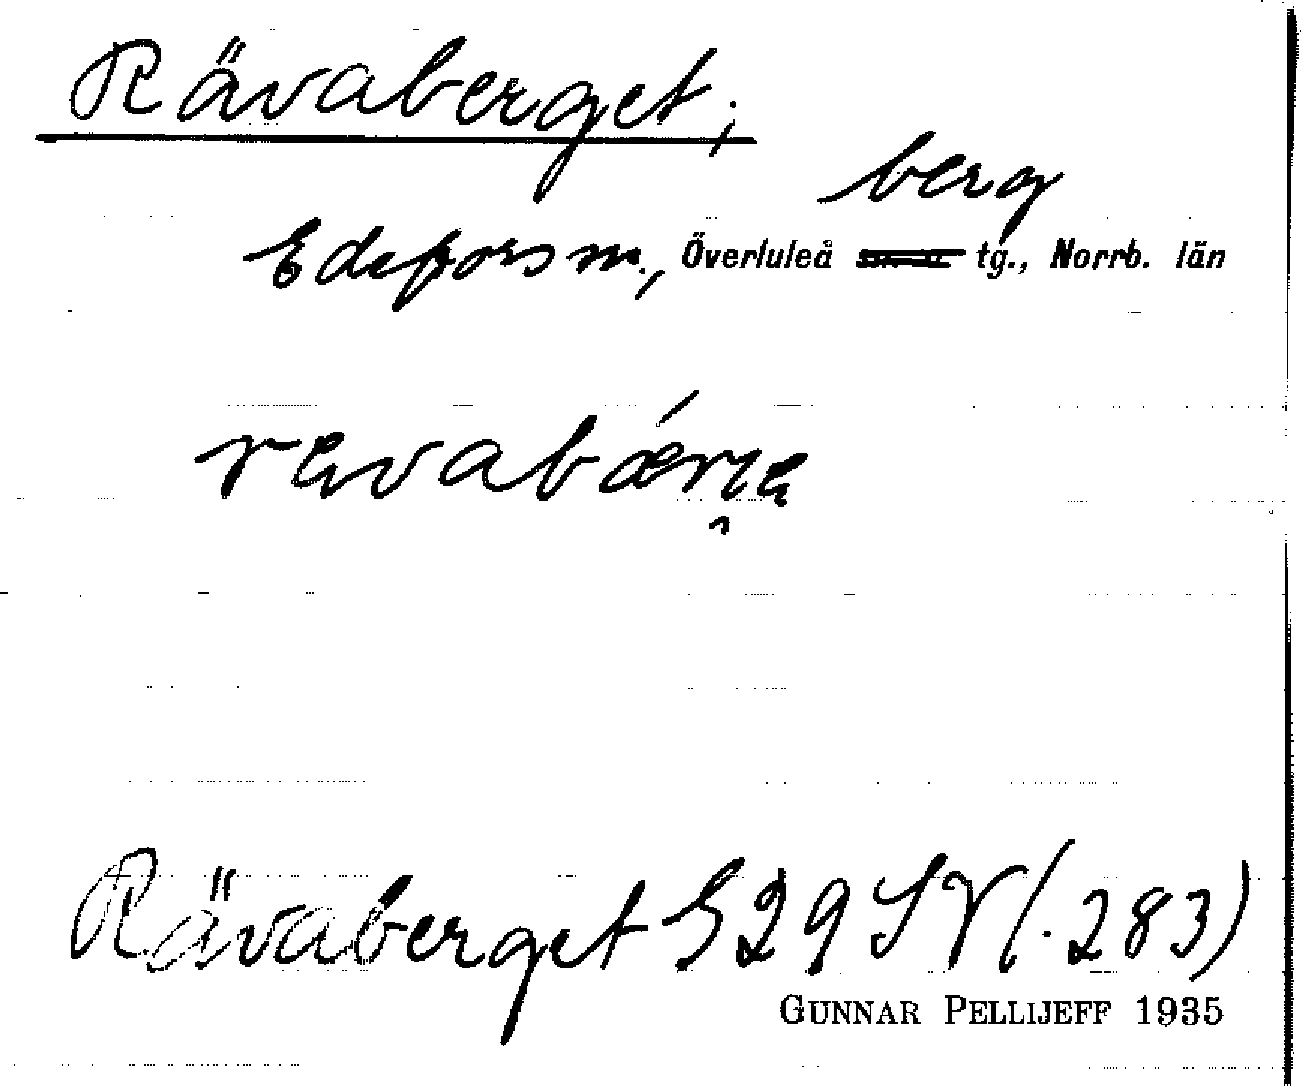 Rävaberget,
berg
Edefors sn., Överluleå tg., Norrb. län
Rävaberget S29SV (.283)
GUNNAR PELLIJEFF 1935